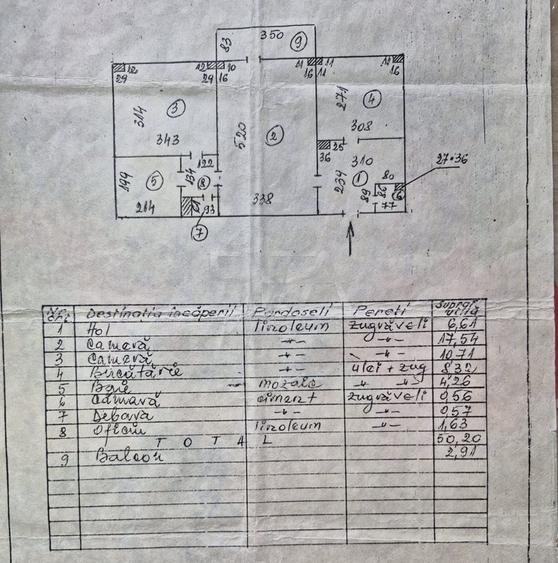 350
83
9
12
29
12
29
10
16
11
11
11
16
12
16
314
3
343
520
2
271
4
308
36
25
310
27×36
199
5
214
134
122
8
93
7
338
239
1
80
89
86
6
77
Destinatia încăperii Pardoseli Pereti Supraf. utilă
1 Hol linoleum zugrăveli 6,61
2 Cameră -"- -"- 17,54
3 Cameră -"- -"- 10,71
4 Bucătărie -"- ulei + zug 8,32
5 Baie mozaic -"- -"- 4,26
6 Cămară ciment zugrăveli 0,56
7 Debara -"- -"- 0,57
8 Oficiu linoleum -"- 1,63
T O T A L 50,20
9 Balcon 2,91